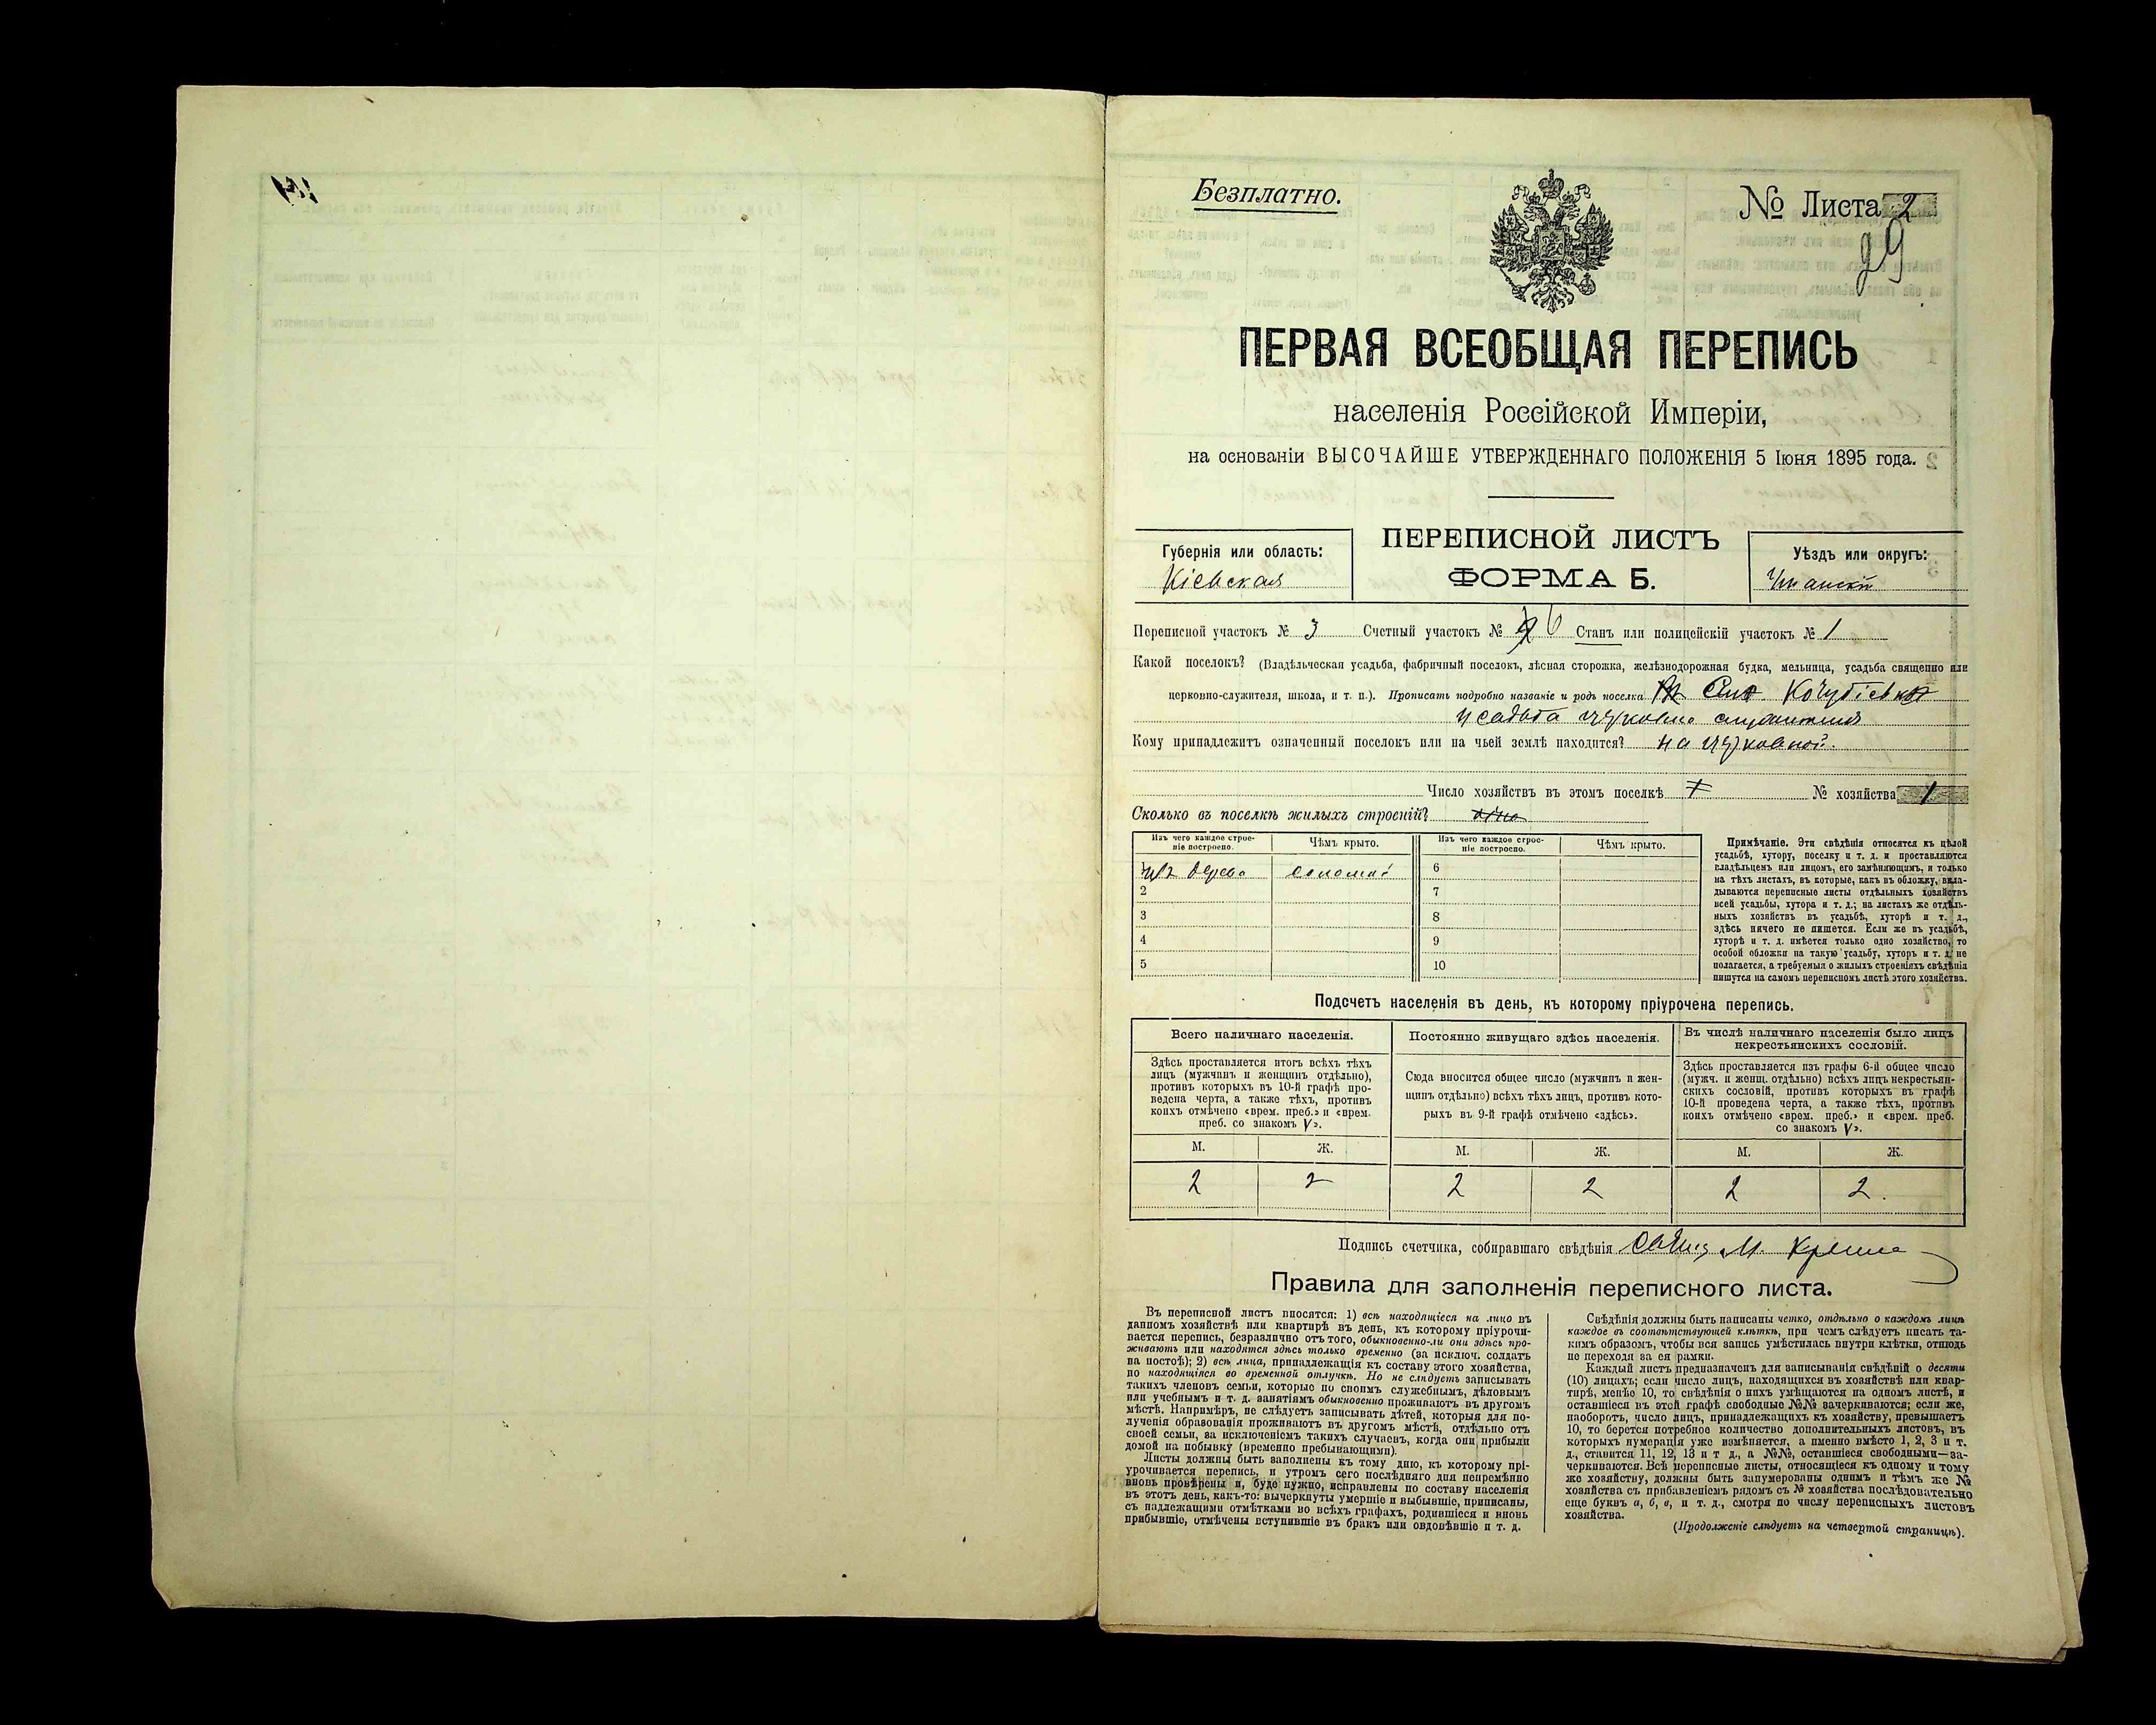 Безплатно.
№ Листа 2
29
ПЕРВАЯ ВСЕОБЩАЯ ПЕРЕПИСЬ
населенія Россійской Имперіи,
на основаніи ВЫСОЧАЙШЕ УТВЕРЖДЕННАГО ПОЛОЖЕНІЯ 5 Іюня 1895 года.
Губернія или область:
Кіевская
ПЕРЕПИСНОЙ ЛИСТЪ
ФОРМА Б.
Уѣздъ или округъ:
Уманскій
Переписной участокъ № 3 Счетный участокъ № 6 Станъ или полицейскій участокъ № 1
Какой поселокъ? (Владѣльческая усадьба, фабричный поселокъ, лѣсная сторожка, желѣзнодорожная будка, мельница, усадьба священно или
церковно-служителя, школа, и т. п.). Прописать подробно названіе и родъ поселка
усадьба церковно служителя
Кому принадлежитъ означенный поселокъ или на чьей землѣ находится? на церковной.
Число хозяйствъ въ этомъ поселкѣ № хозяйства 1
Сколько въ поселкѣ жилыхъ строеній?
Изъ чего каждое строе-
ніе построено.
Чѣмъ крыто.
Изъ чего каждое строе-
ніе построено.
Чѣмъ крыто.
изъ дерева соломой 6
2 7
3 8
4 9
5 10
Примѣчаніе. Эти свѣдѣнія относятся къ цѣлой
усадьбѣ, хутору, поселку и т. д. и проставляются
владѣльцемъ или лицомъ, его замѣняющимъ, и только
на тѣхъ листахъ, въ которые, какъ въ обложку, вкла-
дываются переписные листы отдѣльныхъ хозяйствъ
всей усадьбы, хутора и т. д.; на листахъ же отдѣль-
ныхъ хозяйствъ въ усадьбѣ, хуторѣ и т. д.,
здѣсь ничего не пишется. Если же въ усадьбѣ,
хуторѣ и т. д. имѣется только одно хозяйство, то
особой обложки на такую усадьбу, хуторъ и т. д. не
полагается, а требуемыя о жилыхъ строеніяхъ свѣдѣнія
пишутся на самомъ переписномъ листѣ этого хозяйства.
Подсчетъ населенія въ день, къ которому пріурочена перепись.
Всего наличнаго населенія.
Здѣсь проставляется итогъ всѣхъ тѣхъ
лицъ (мужчинъ и женщинъ отдѣльно),
противъ которыхъ въ 10-й графѣ про-
ведена черта, а также тѣхъ, противъ
коихъ отмѣчено «врем. преб.» и «врем.
преб. со знакомъ V».
М. Ж.
2 2
Постоянно живущаго здѣсь населенія.
Сюда вносится общее число (мужчинъ и жен-
щинъ отдѣльно) всѣхъ тѣхъ лицъ, противъ кото-
рыхъ въ 9-й графѣ отмѣчено «здѣсь».
М. Ж.
2 2
Въ числѣ наличнаго населенія было лицъ
некрестьянскихъ сословій.
Здѣсь проставляется изъ графы 6-й общее число
(мужч. и женщ. отдѣльно) всѣхъ лицъ некрестьян-
скихъ сословій, противъ которыхъ въ графѣ
10-й проведена черта, а также тѣхъ, противъ
коихъ отмѣчено «врем. преб.» и «врем. преб.
со знакомъ V».
М. Ж.
2 2.
Подпись счетчика, собиравшаго свѣдѣнія
Правила для заполненія переписного листа.
Въ переписной листъ вносятся: 1) всѣ находящіеся на лицо въ
данномъ хозяйствѣ или квартирѣ въ день, къ которому пріурочи-
вается перепись, безразлично отъ того, обыкновенно-ли они здѣсь про-
живаютъ или находятся здѣсь только временно (за исключ. солдатъ
на постоѣ); 2) всѣ лица, принадлежащія къ составу этого хозяйства,
но находящіяся во временной отлучкѣ. Но не слѣдуетъ записывать
такихъ членовъ семьи, которые по своимъ служебнымъ, дѣловымъ
или учебнымъ и т. д. занятіямъ обыкновенно проживаютъ въ другомъ
мѣстѣ. Напримѣръ, не слѣдуетъ записывать дѣтей, которыя для по-
лученія образованія проживаютъ въ другомъ мѣстѣ, отдѣльно отъ
своей семьи, за исключеніемъ такихъ случаевъ, когда они прибыли
домой на побывку (временно пребывающими).
Листы должны быть заполнены къ тому дню, къ которому прі-
урочивается перепись, и утромъ сего послѣдняго дня непремѣнно
вновь провѣрены и, буде нужно, исправлены по составу населенія
въ этотъ день, какъ-то: вычеркнуты умершіе и выбывшіе, приписаны,
съ надлежащими отмѣтками во всѣхъ графахъ, родившіеся и вновь
прибывшіе, отмѣчены вступившіе въ бракъ или овдовѣвшіе и т. д.
Свѣдѣнія должны быть написаны четко, отдѣльно о каждомъ лицѣ
каждое въ соотвѣтствующей клѣткѣ, при чемъ слѣдуетъ писать та-
кимъ образомъ, чтобы вся запись умѣстилась внутри клѣтки, отнюдь
не переходя за ея рамки.
Каждый листъ предназначенъ для записыванія свѣдѣній о десяти
(10) лицахъ; если число лицъ, находящихся въ хозяйствѣ или квар-
тирѣ, менѣе 10, то свѣдѣнія о нихъ умѣщаются на одномъ листѣ, и
оставшіеся въ этой графѣ свободные №№ зачеркиваются; если же,
наоборотъ, число лицъ, принадлежащихъ къ хозяйству, превышаетъ
10, то берется потребное количество дополнительныхъ листовъ, въ
которыхъ нумерація уже измѣняется, а именно вмѣсто 1, 2, 3 и т.
д., ставится 11, 12, 13 и т д., а №№, оставшіеся свободными—за-
черкиваются. Всѣ переписные листы, относящіеся къ одному и тому
же хозяйству, должны быть занумерованы однимъ и тѣмъ же №
хозяйства съ прибавленіемъ рядомъ съ № хозяйства послѣдовательно
еще буквъ а, б, в, и т. д., смотря по числу переписныхъ листовъ
хозяйства.
(Продолженіе слѣдуетъ на четвертой страницѣ).